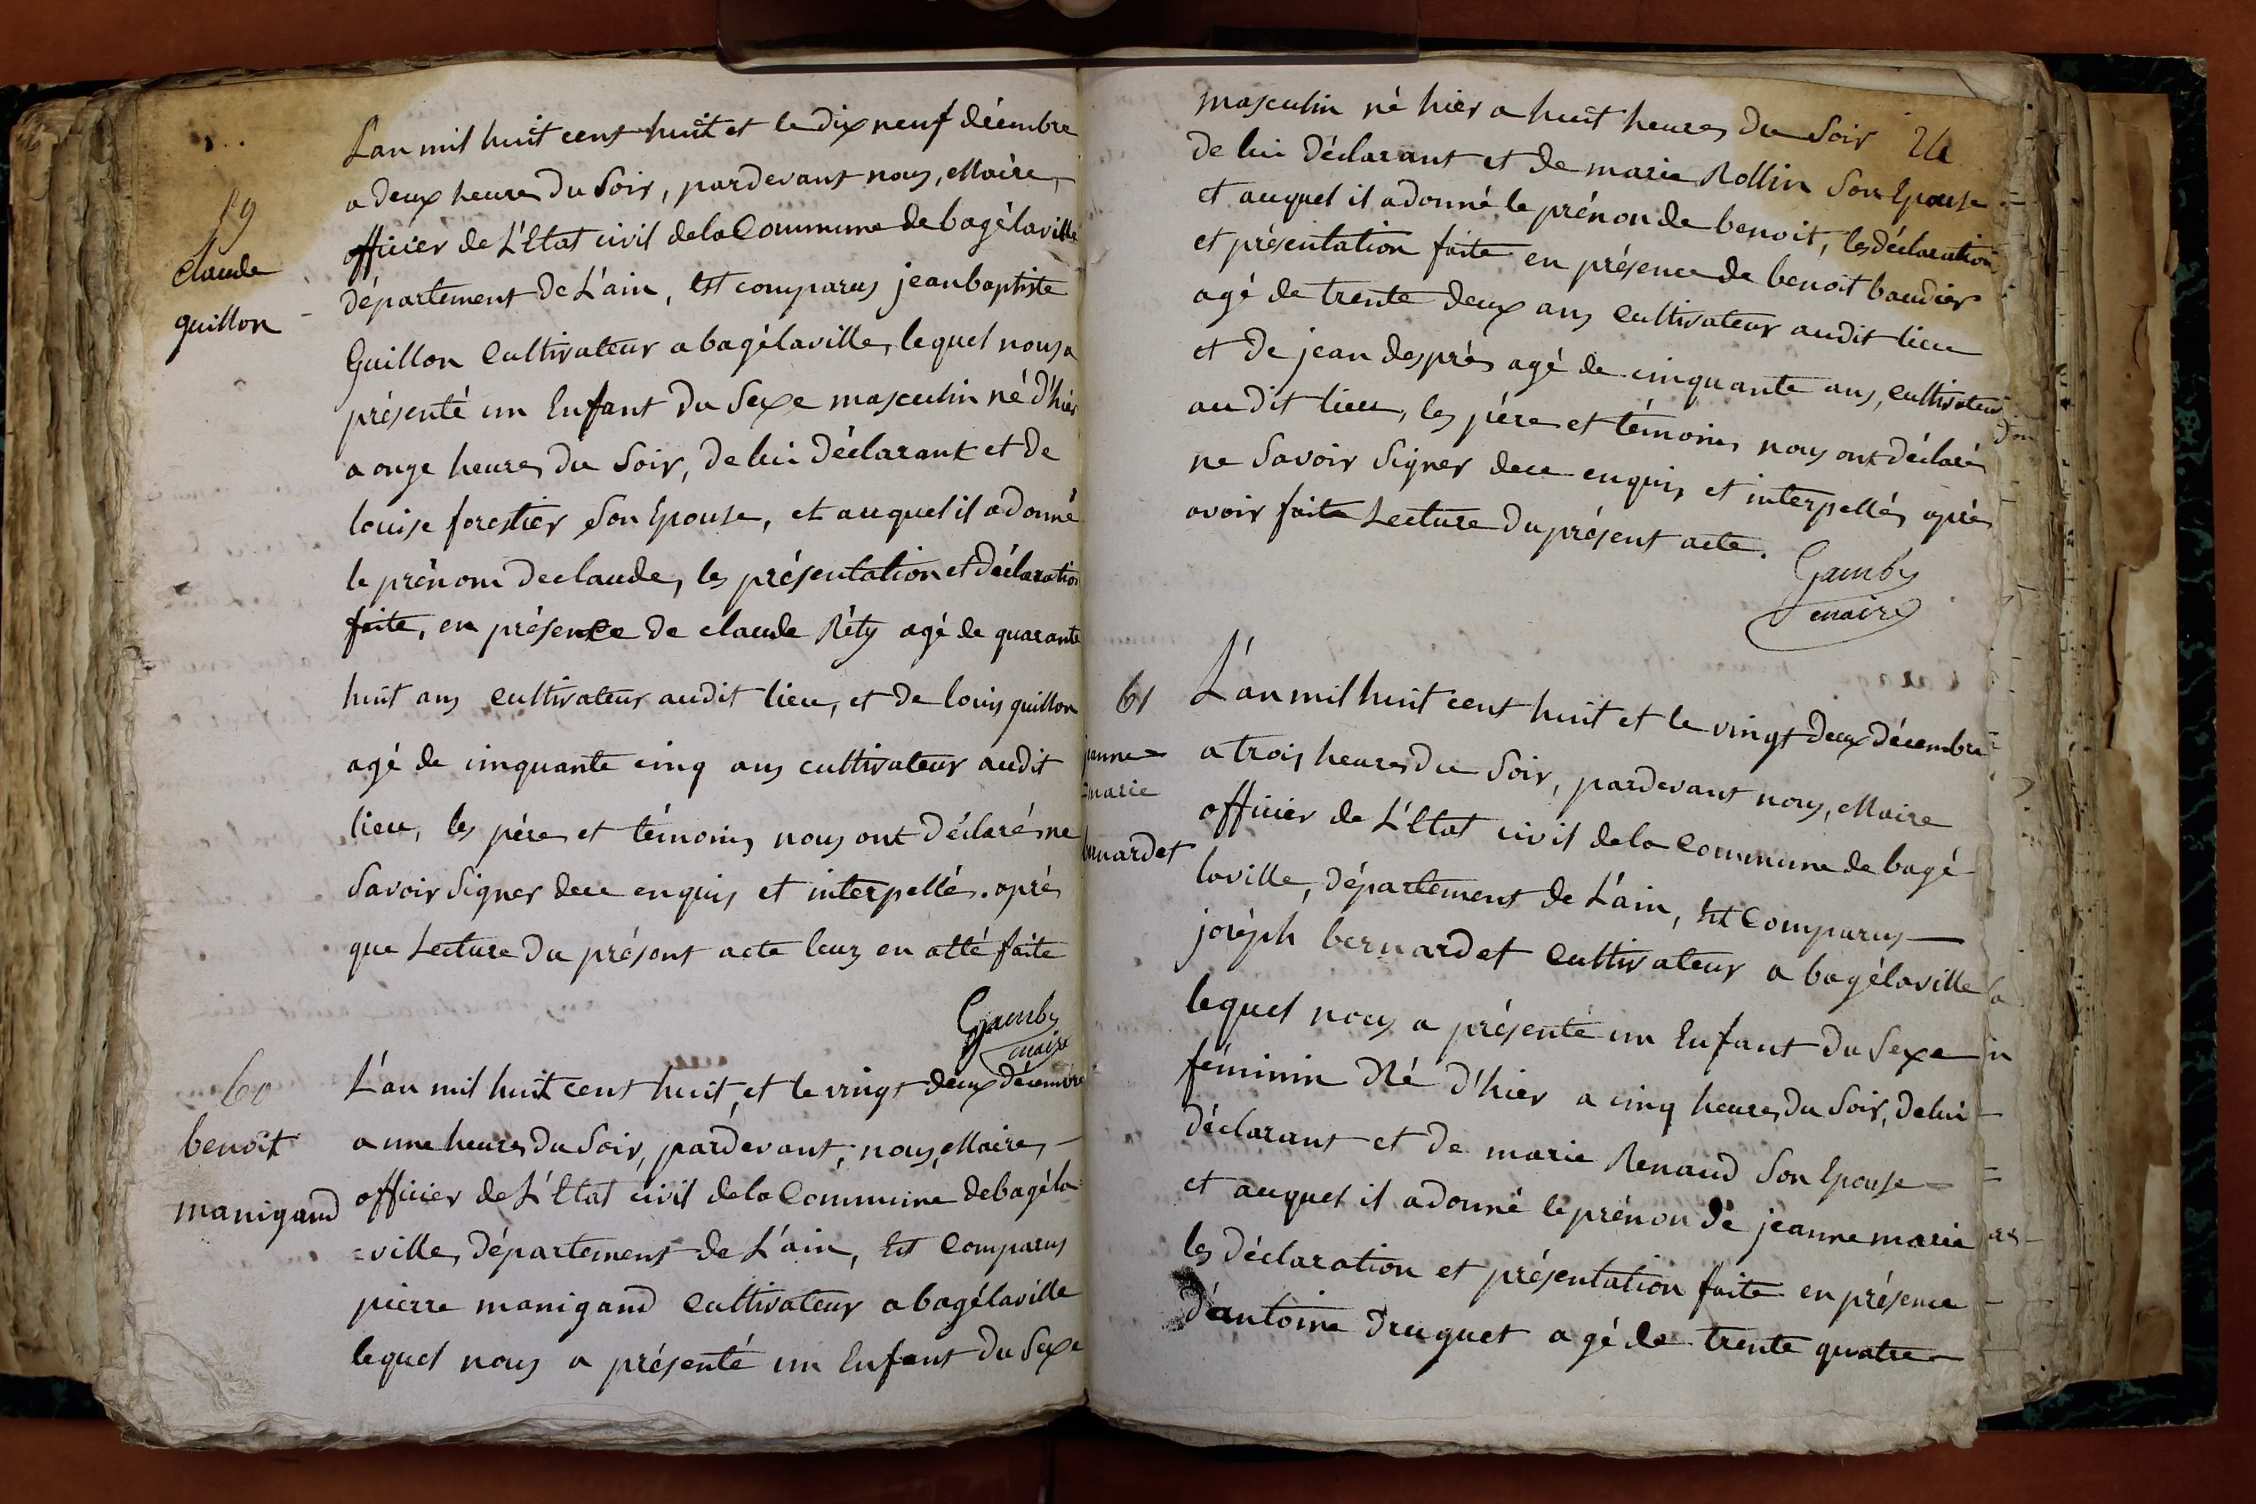 59
claude
guillon
L'an mil huit cent huit et le dix neuf décembre
a deux heures du Soir, pardevant nous, Maire,
officier de L'Etat civil de la Commune de bagélaville
département de L'ain, Est comparus jean baptiste
Guillon Cultivateur a bagélaville, lequel nous a
présenté un Enfant du Sexe masculin né d'hier
a onze heures du Soir, de lui déclarant et de
louise forestier Son Epouse, et auquel il a donné
le prénom de claude, les présentation et déclaration
faite, en présence de claude Réty agé de quarante
huit ans cultivateur audit lieu, et de louis guillon
agé de cinquante cinq ans cultivateur audit
lieu, les père et témoins nous ont déclarés ne
Savoir Signer de ce enquis et interpellés. après
que Lecture du présent acte leurs en atté faite
Gamby
maire
60
benoit
manigand
L'an mil huit cent huit, et le vingt deux décembre
a une heures du Soir, pardevant, nous, Maire,
officier de L'Etat civil de la Commune de bagéla
=ville, département de L'ain, Est Comparus
pierre manigand Cultivateur a bagélaville
lequel nous a présenté un Enfant du Sexe
24
masculin né hier a huit heures du Soir
de lui déclarant et de marie Rollin Son Epouse
et auquel il a donné le prénon de benoit, les déclaration
et présentation faite en présence de benoit baudier
agé de trente deux ans Cultivateur audit lieu
et de jean desprès agé de cinquante ans, cultivateur
audit lieu, les père et témoins nous ont déclarés
ne Savoir Signer de ce enquis et interpellés après
avoir faite Lecture du présent acte.
Gamby
maire
61
jeanne=
=marie
bernardet
L'an mil huit cent huit et le vingt deux décembre
a trois heures du Soir, pardevant nous, Maire
officier de L'Etat civil de la Commune de bagé
laville, département de L'ain, Est Comparus
joséph bernardet Cultivateur a bagélaville
lequel nous a présenté un Enfant du Sexe
féminin Né d'hier a cinq heures du Soir, de lui
déclarant et de marie Renaud Son Epouse
et auquel il a donné le prénon de jeanne marie
les déclaration et présentation faite en présence
d'antoine druguet agé de trente quatre